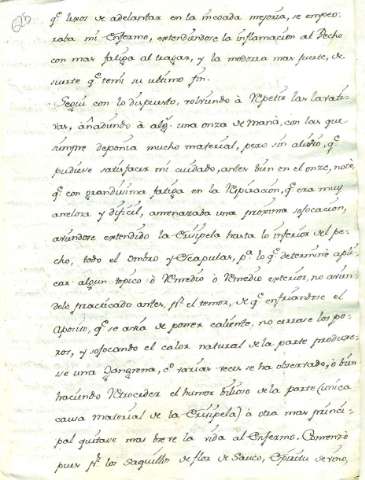 q.e lexos de adelantar en la incoada mejoria, se empeo-
raba mi Enfermo, extendiendose la inflamacion al Pecho
con mas fatiga al tragar, y la modorra mas fuerte, de
suerte q.e temi su ultimo fin.
Segui con lo dispuesto, volviendo à repetir las lavati-
vas, añadiendo à alg.a una onza de manà, con las que
siempre deponia mucho material, pero sin alivio, q.e
pudiese satisfacer mi cuidado, antes bien en el onze, notè,
q.e con grandissima fatiga en la respiracion, q.e era muy
anelosa y dificil, amenazaba una proxima sofocacion,
aviendose extendido la Erisipela hasta lo inferior del pe-
cho, todo el Ombro y Escapular, p.r lo q.e determinè apli-
car algun topico ò remedio ò remedio exterior, no avien-
dolo practicado antes, p.r el temor, de q.e enfriandose el
Aposito, q.e se avia de poner caliente, no cerrase los po-
ros, y sofocando el calor natural de la parte produge-
se una Gangrena, c.o varias veces se ha observado, ò bien
haciendo retroceder el humor bilioso de la parte (unica
causa material de la Erisipela) ò otra mas princi-
pal quitase mas breve la vida al Enfermo. Comenzè
pues p.r los saquillos de flor de Sauco, Espiritu de vino,